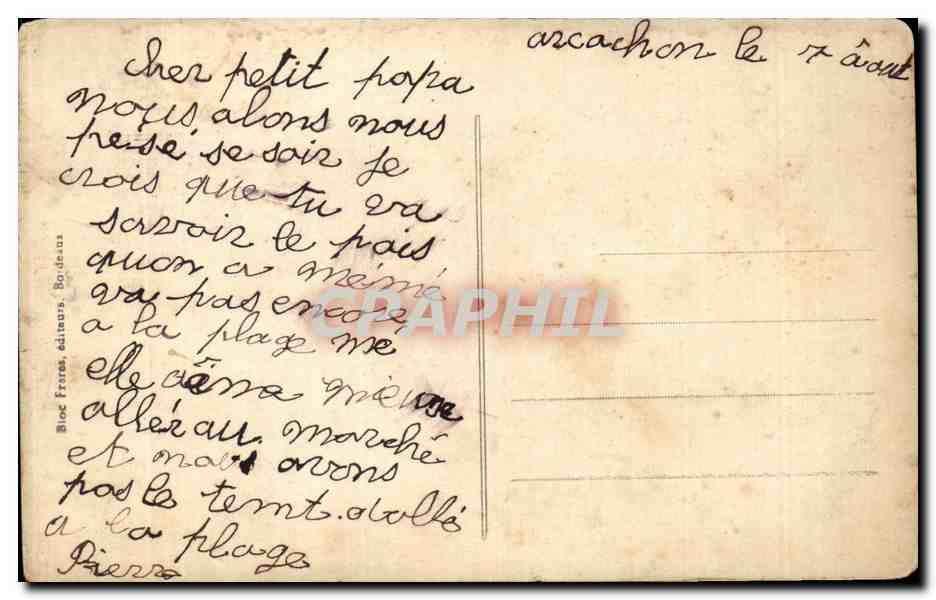 arcachon le 7 âout
Cher petit papa
nous alons nous
pesé se soir je
crois que tu va
savoir le pois
quon a mémé
va pas encore
a la plage me
elle aême mieux
allér au marché
et nous avons
pas le temt dallé
a la plage
Pierre
Bloc Freres, éditeurs, Bordeaux
CPAPHIL